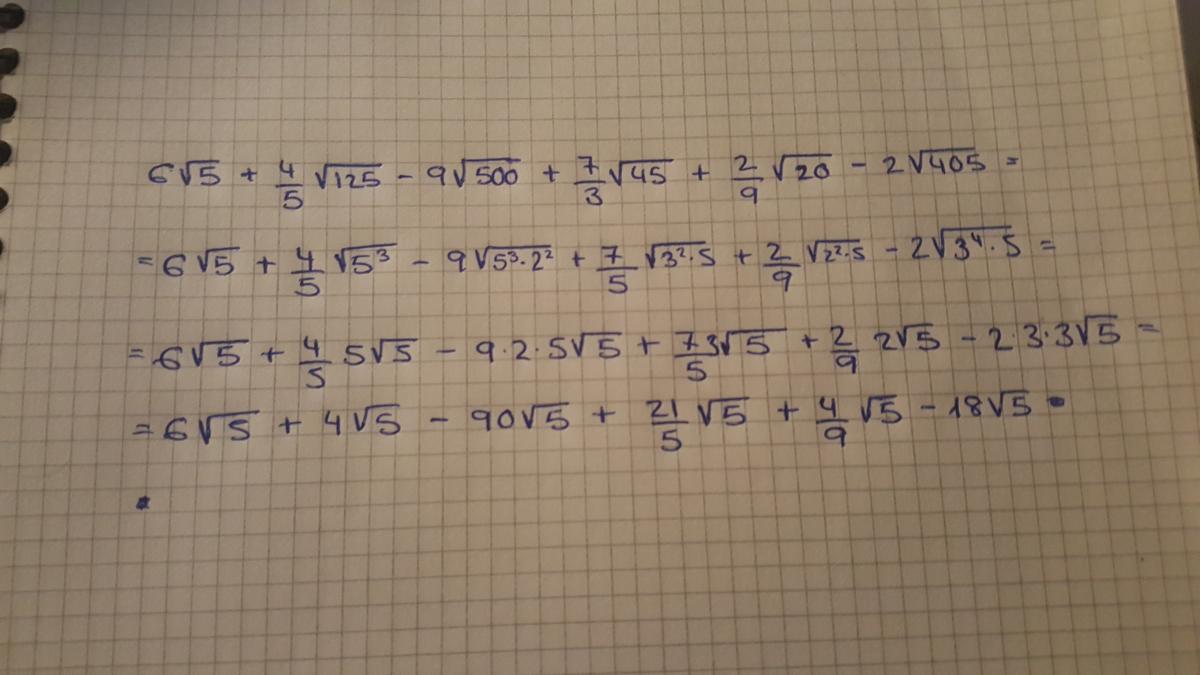 6√5 + 4/5 √125 - 9√500 + 7/3 √45 + 2/9 √20 - 2√405 =
= 6√5 + 4/5 √5³ - 9√5³·2² + 7/5 √3²·5 + 2/9 √2²·5 - 2√3⁴·5 =
= 6√5 + 4/5 5√5 - 9·2·5√5 + 7/5 3√5 + 2/9 2√5 - 2·3·3√5 =
= 6√5 + 4√5 - 90√5 + 21/5 √5 + 4/9 √5 - 18√5